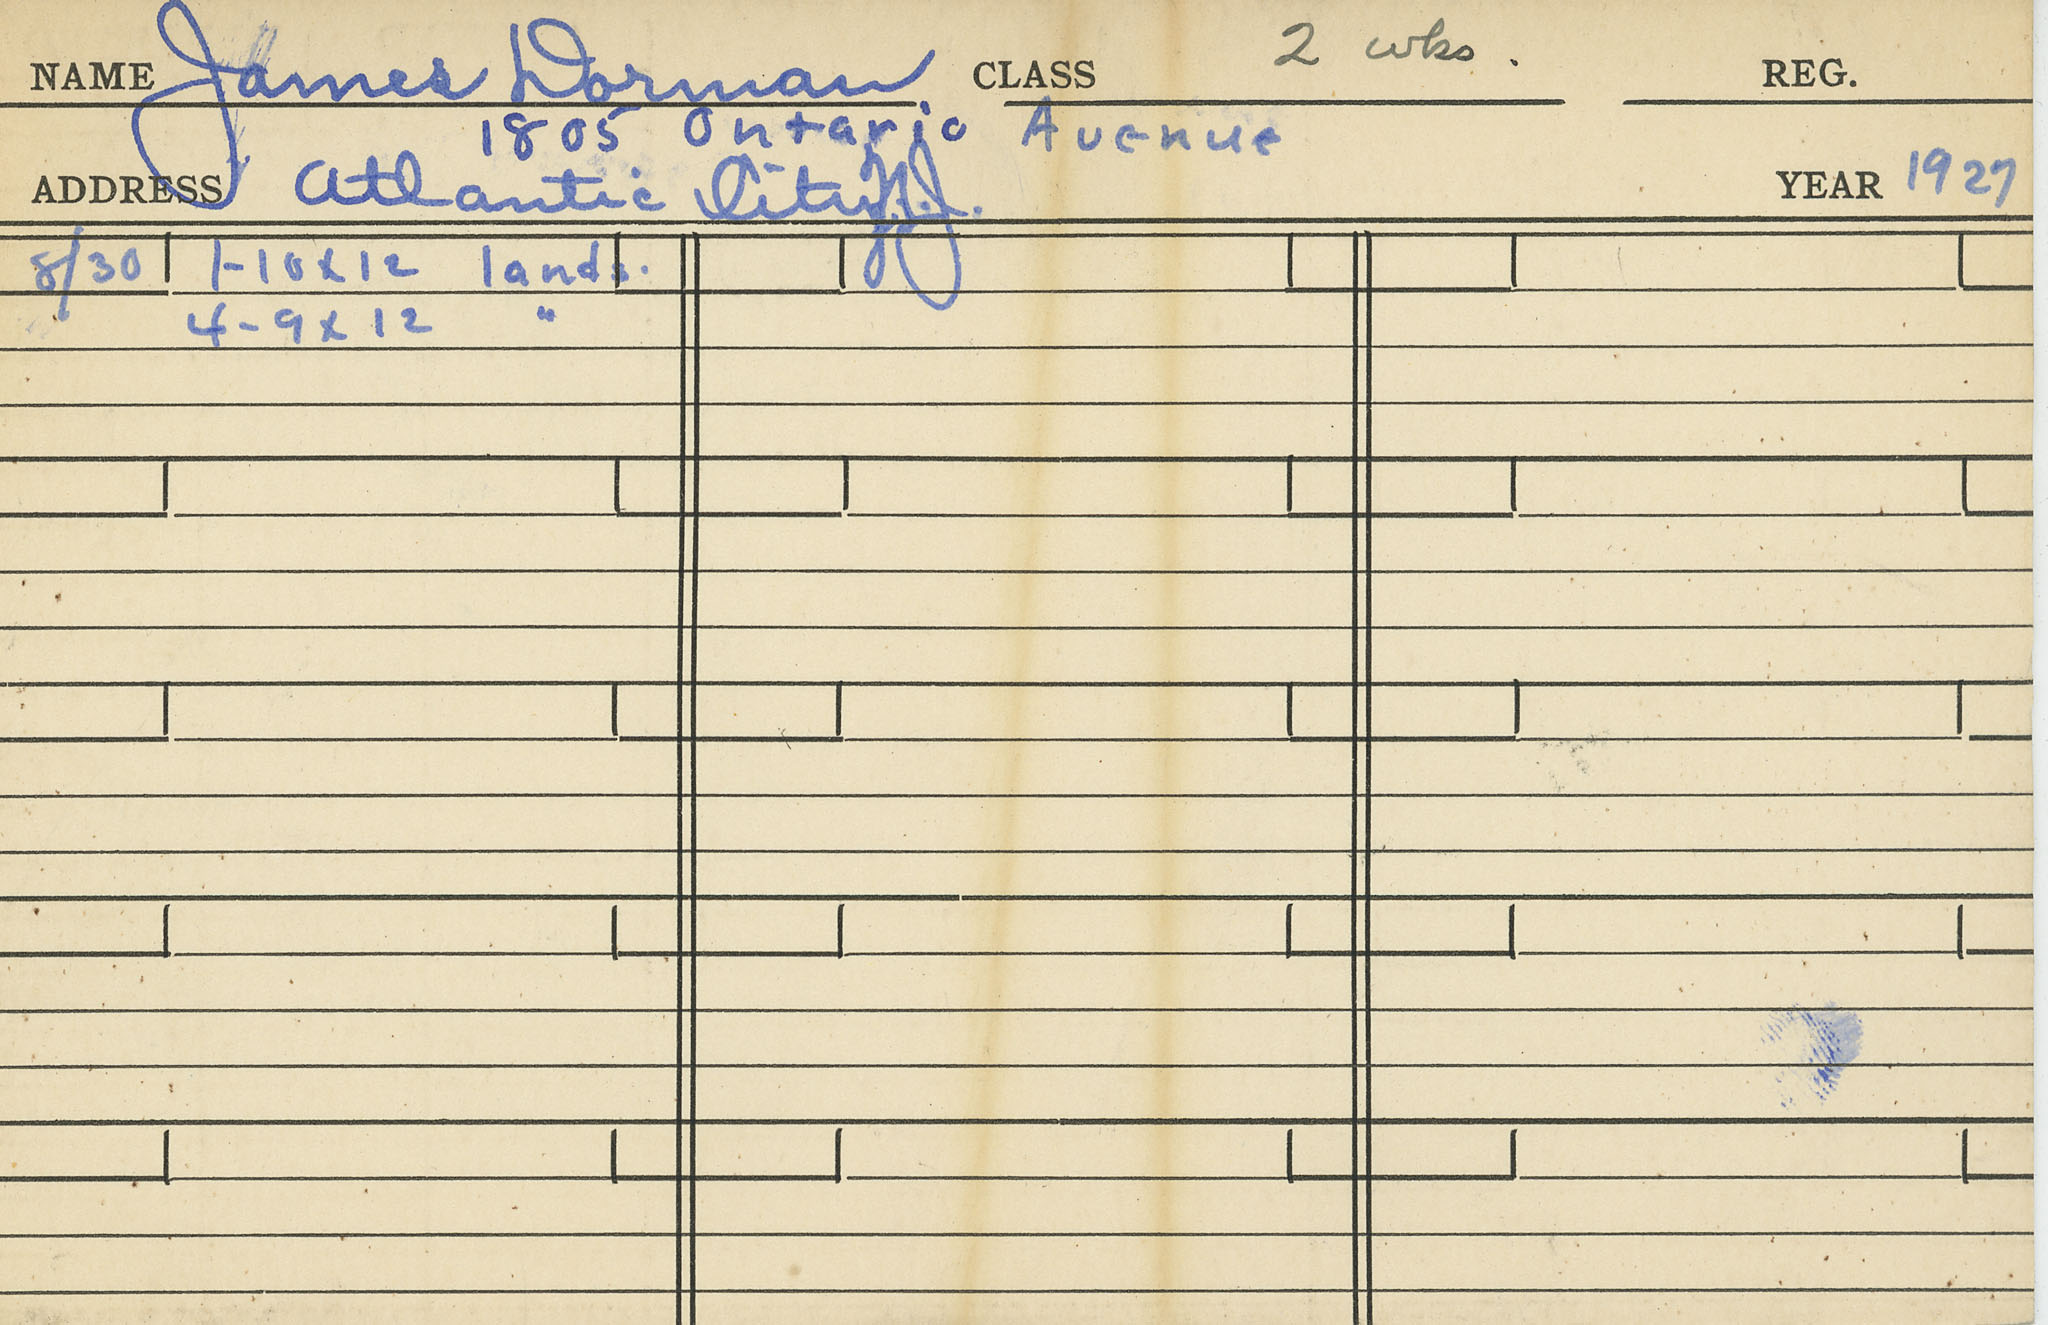 NAME James Dorman CLASS 2 wks. REG.
1805 Ontario Avenue
ADDRESS Atlantic City, N.J. YEAR 1927
8/30 1-10x12 lands.
4-9x12 "